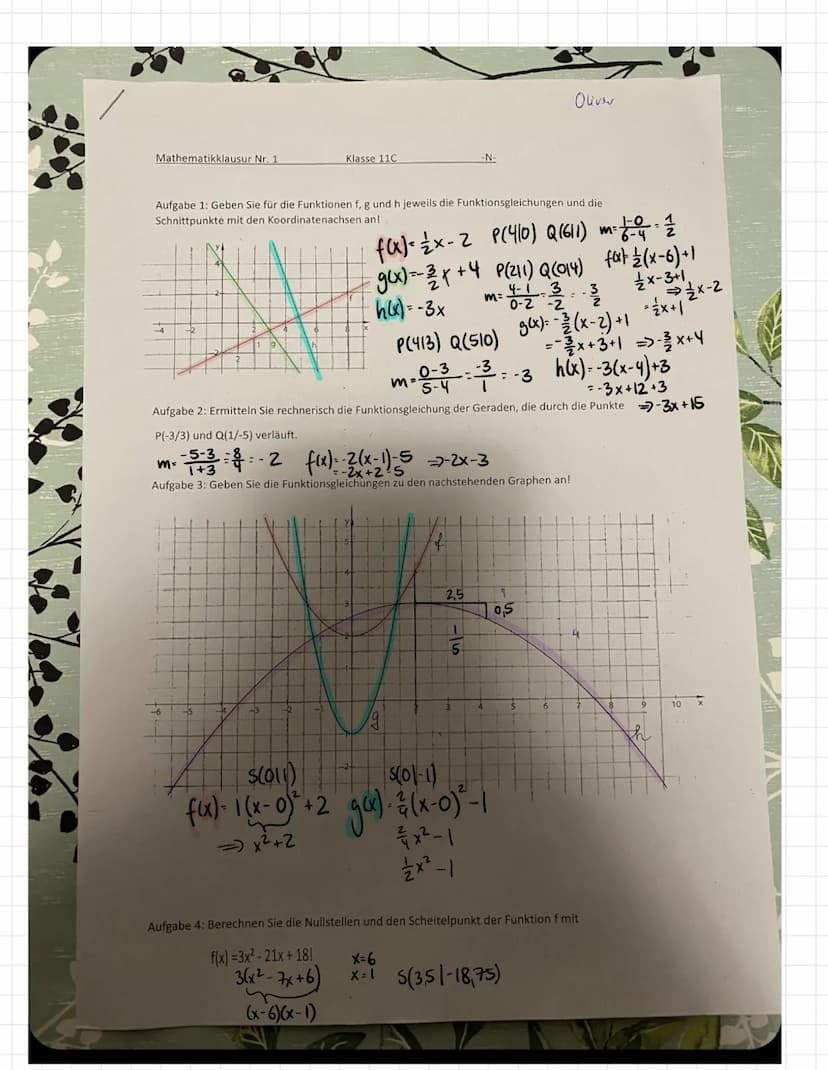 Oliver
Mathematikklausur Nr. 1 Klasse 11C -N-
Aufgabe 1: Geben Sie für die Funktionen f, g und h jeweils die Funktionsgleichungen und die
Schnittpunkte mit den Koordinatenachsen an!
f(x)= 1/2x - 2 P(4|0) Q(6|1) m= 1-0/6-4 = 1/2
g(x)=-3/2x +4 P(2|1) Q(0|4) f(x)= 1/2(x-6)+1
m= 4-1/0-2 = 3/-2 = -3/2 1/2x-3+1 ⇒ 1/2x-2
h(x)= -3x = 1/2x+1
P(4|3) Q(5|0) g(x)= -3/2(x-2)+1
= -3/2x+3+1 ⇒ -3/2x+4
m= 0-3/5-4 = -3/1 = -3 h(x)= -3(x-4)+3
= -3x+12+3
⇒ -3x+15
Aufgabe 2: Ermitteln Sie rechnerisch die Funktionsgleichung der Geraden, die durch die Punkte
P(-3/3) und Q(1/-5) verläuft.
m= -5-3/1+3 = -8/4 = -2 f(x)= -2(x-1)-5 ⇒ -2x-3
= -2x+2-5
Aufgabe 3: Geben Sie die Funktionsgleichungen zu den nachstehenden Graphen an!
y
f
2,5
0,5
1/5
4
-6 -5 -4 -3 -2 -1 3 4 5 6 7 8 9 10 x
g
h
-2
S(0|1) S(0|-1)
f(x)= 1(x-0)²+2 g(x)= 2/4(x-0)²-1
⇒ x²+2 2/4x²-1
1/2x²-1
Aufgabe 4: Berechnen Sie die Nullstellen und den Scheitelpunkt der Funktion f mit
f(x) =3x² - 21x + 18!
x=6
3(x²-7x+6) x=1 S(3,5|-18,75)
(x-6)(x-1)